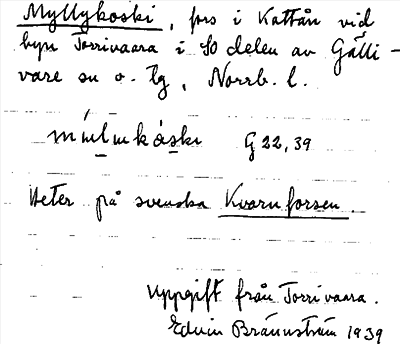 Myllykoski, fors i Kattån vid
byn Torrivaara i SO delen av Gälli-
vare sn o. tg, Norrb. l.
mílmkåski G 22, 39
Heter på svenska Kvarnforsen.
Uppgift från Torrivaara.
Edvin Brännström 1939